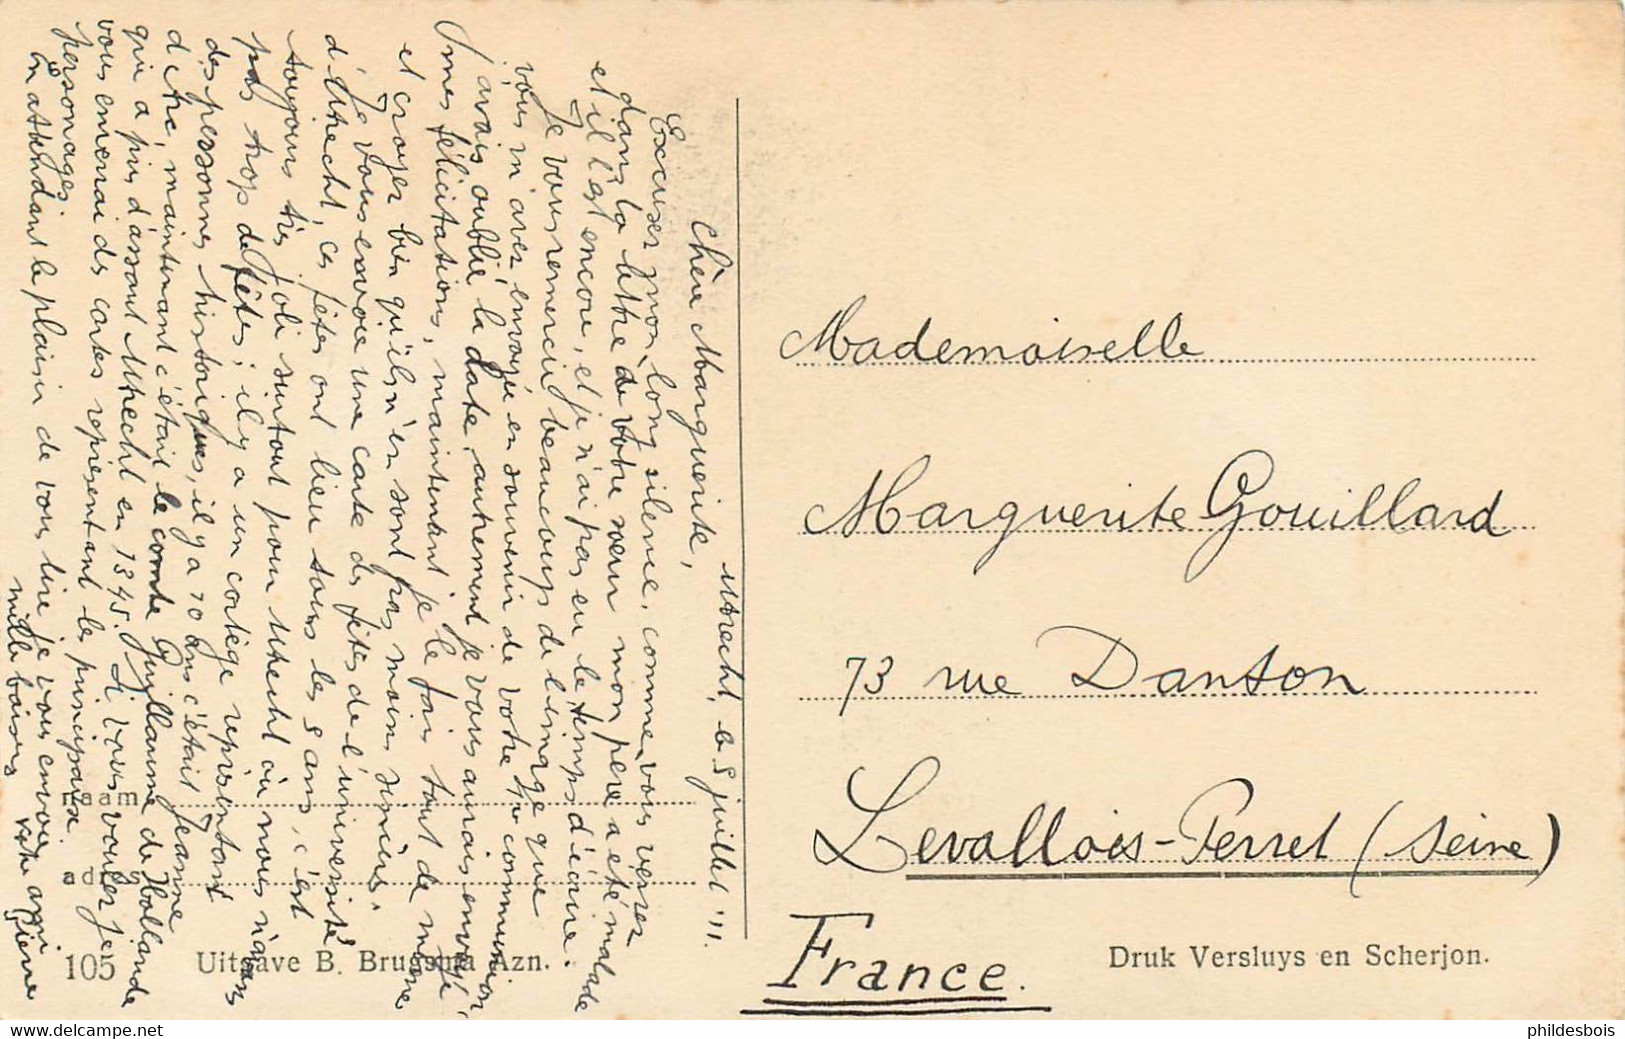 Utrecht, le 5 juillet '11.
Chère Marguerite,
Excusez mon long silence, comme vous verrez
dans la lettre de votre sœur mon père a été malade
et il l'est encore, et je n'ai pas eu le temps d'écrire.
Je vous remercie beaucoup de l'image que
vous m'avez envoyée en souvenir de votre 1re communion,
j'avais oublié la date, autrement je vous aurais envoyé
mes félicitations, maintenant je le fais tout de même
et croyez bien qu'ils n'en sont pas moins sincères.
Je vous envoie une carte des fêtes de l'université
d'Utrecht, ces fêtes ont lieu tous les 5 ans, c'est
toujours très joli surtout pour Utrecht où nous n'avons
pas trop de fêtes; il y a un cortège représentant
des personnes historiques, il y a 10 ans c'était Jeanne
d'Arc, maintenant c'était le comte Guyllaume de Hollande
qui a pris d'assaut Utrecht en 1345. Si vous voulez je
vous enverrai des cartes représentant les principaux
personages.
En attendant le plaisir de vous lire je vous envoie
mille baisers
Votre amie
Mademoiselle
Marguerite Gouillard
73 rue Danton
Levallois-Perret (Seine)
France.
naam
adres
105 Uitgave B. Brugsma Azn.
Druk Versluys en Scherjon.
www.delcampe.net
phildesbois